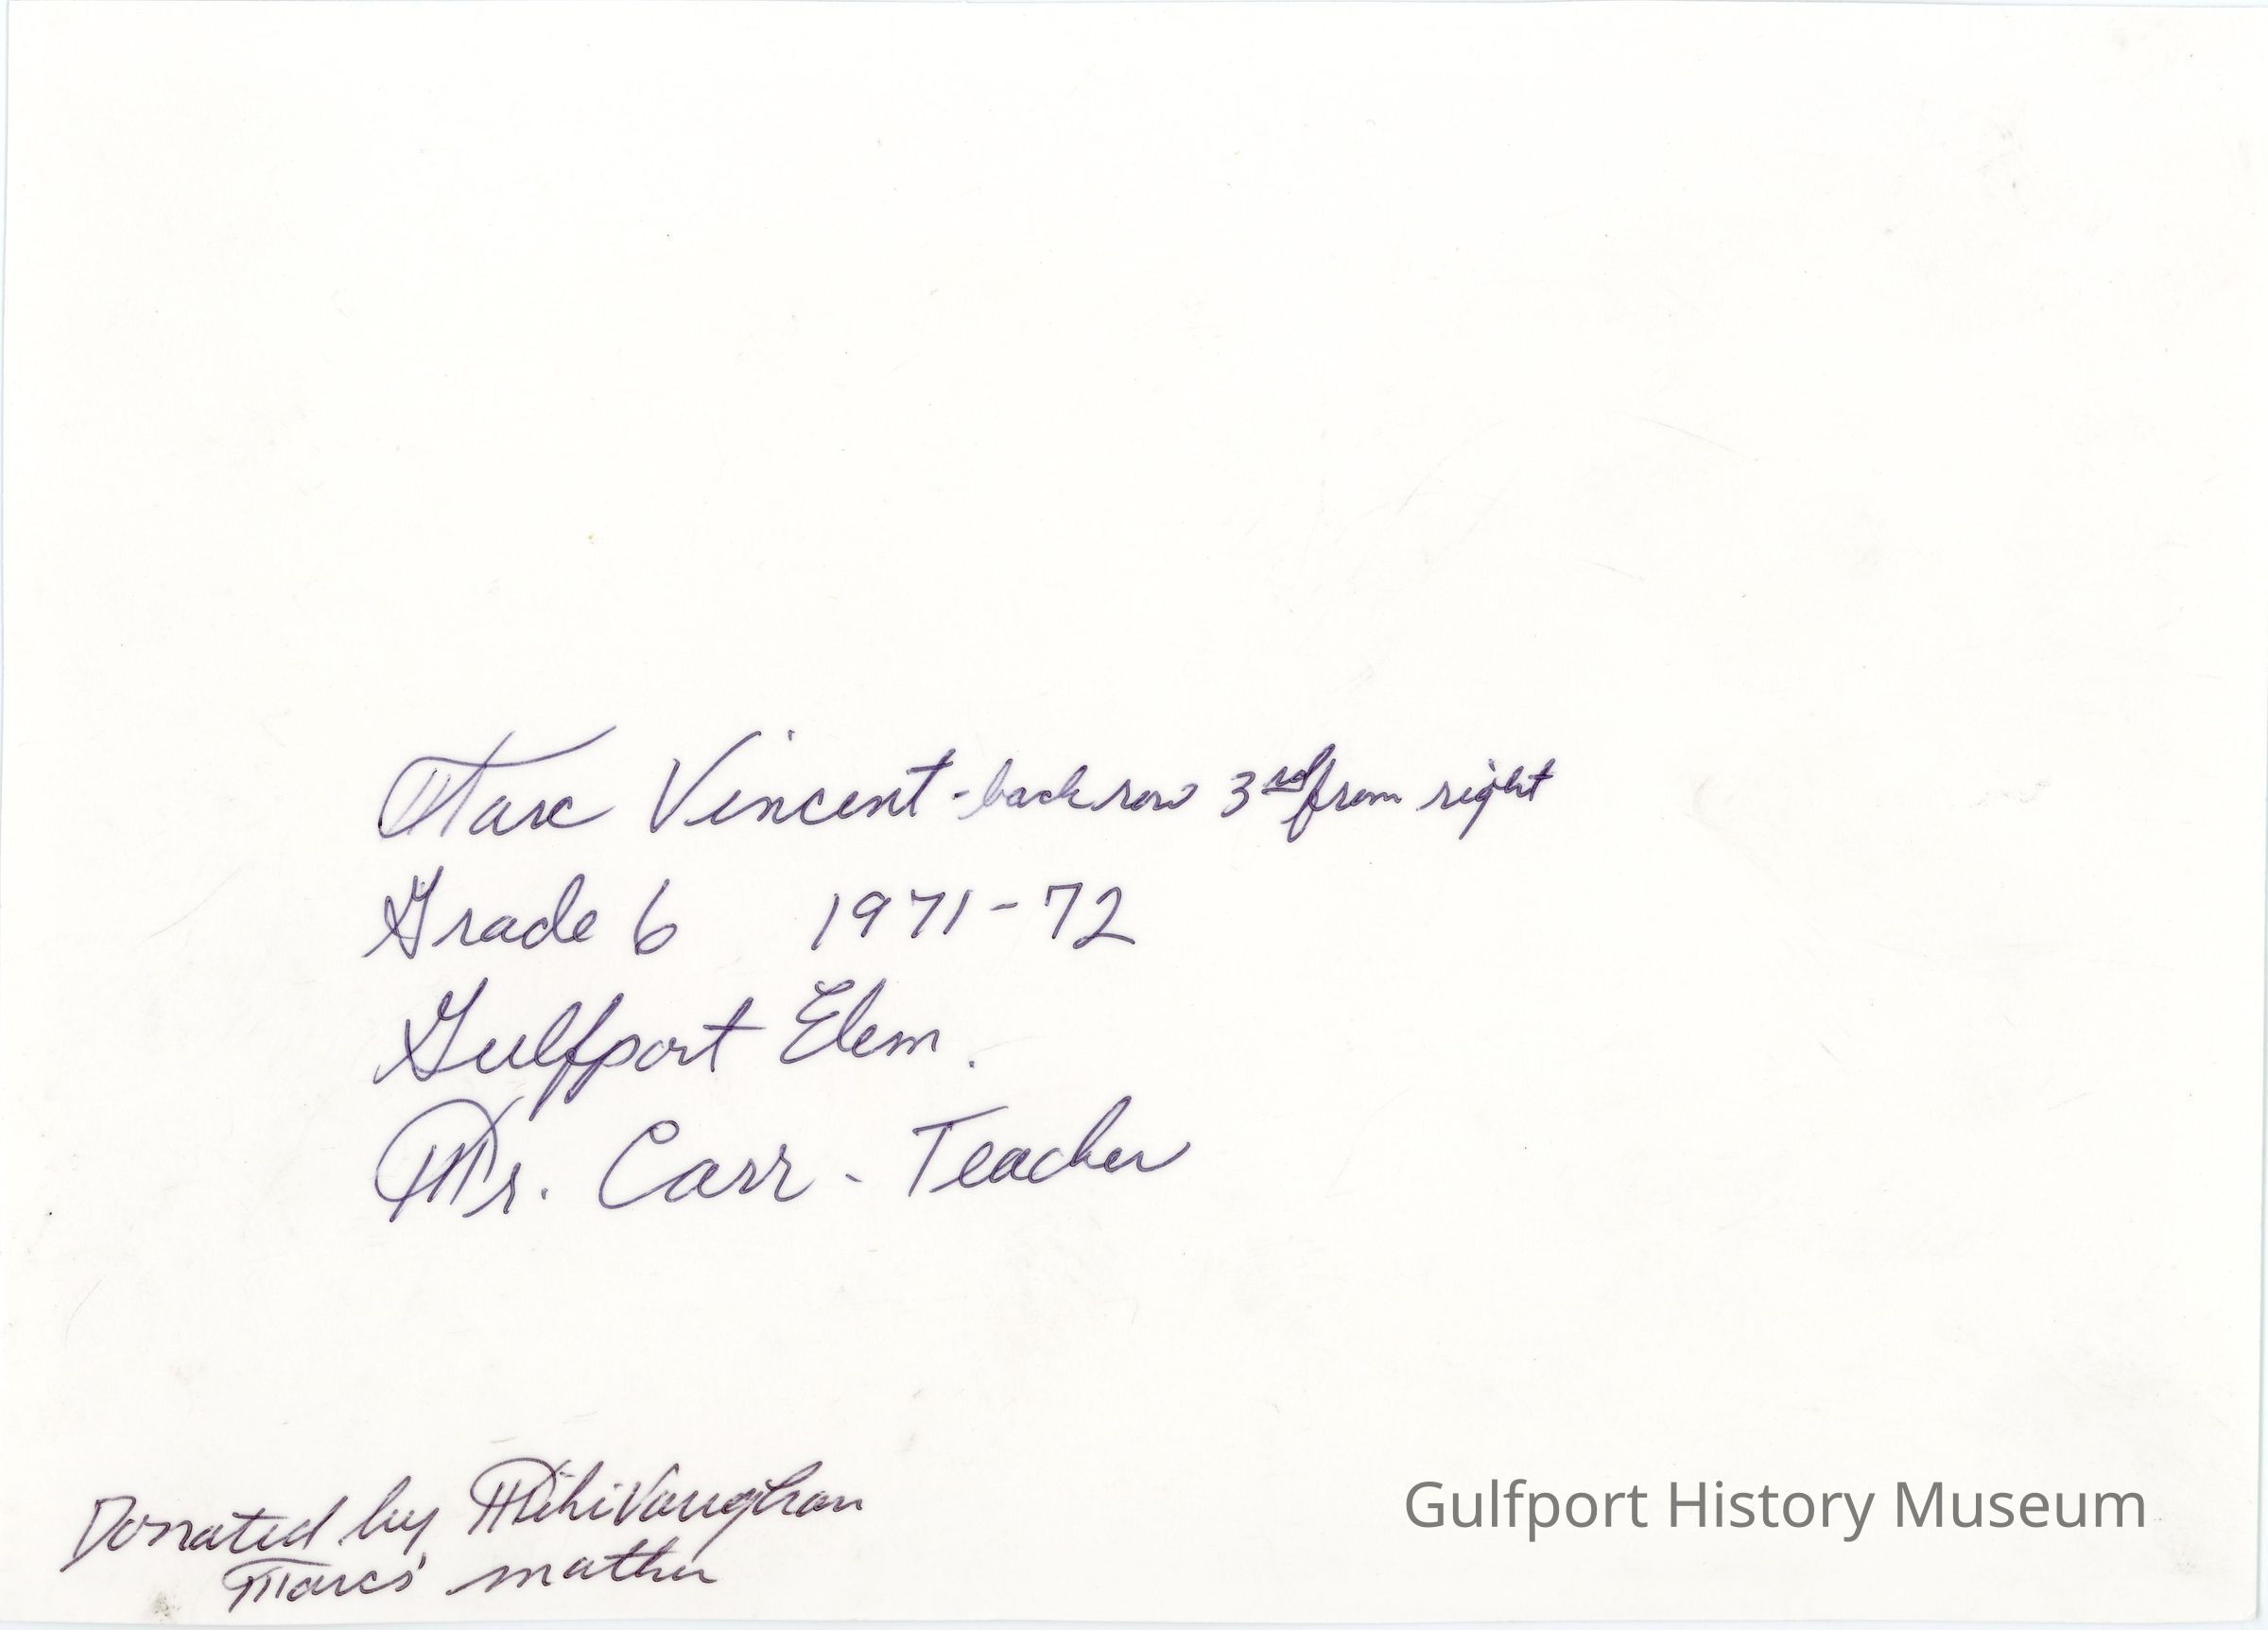 Marc Vincent - back row 3rd from right
Grade 6 1971-72
Gulfport Elem.
Mr. Carr - Teacher
Donated by Miki Vaughan
Marcs' mother
Gulfport History Museum